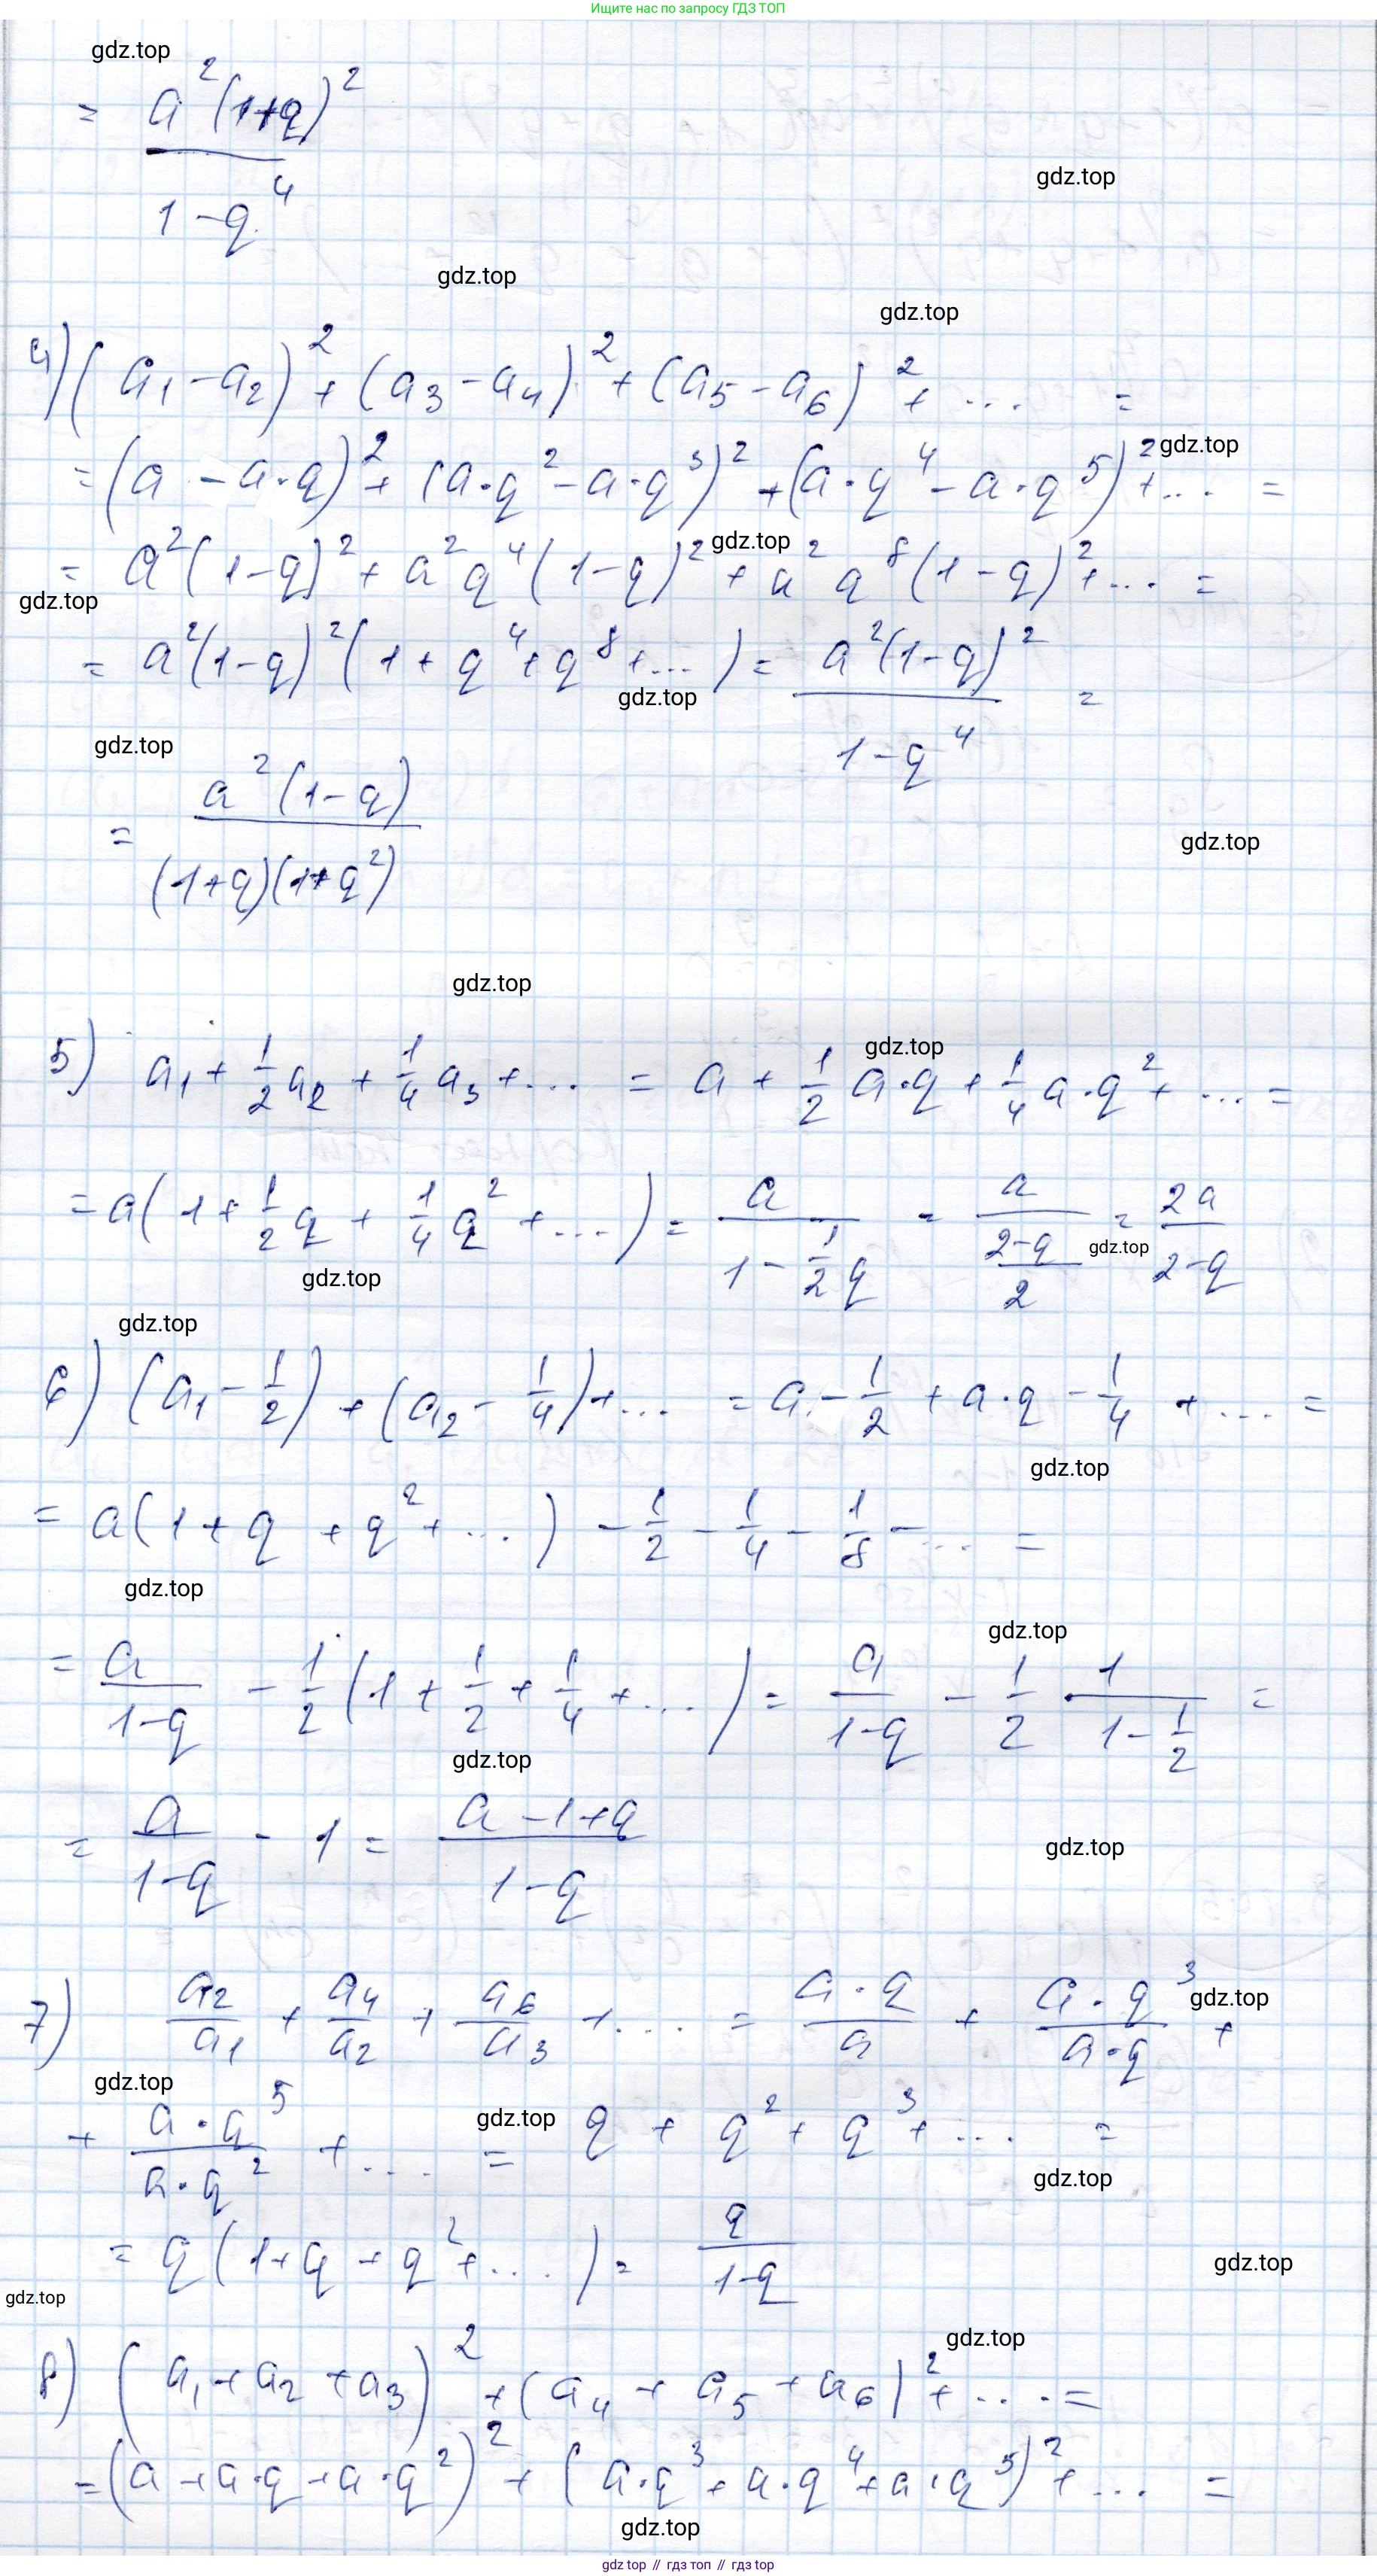 Ищите нас по запросу ГДЗ ТОП
gdz.top
= a²(1+q)² / (1-q⁴)
gdz.top
gdz.top
gdz.top
4) (a₁-a₂)² + (a₃-a₄)² + (a₅-a₆)² + ... =
gdz.top
= (a - a·q)² + (a·q² - a·q³)² + (a·q⁴ - a·q⁵)² + ... =
gdz.top
= a²(1-q)² + a²q⁴(1-q)² + a²q⁸(1-q)² + ... =
gdz.top
= a²(1-q)²(1+q⁴+q⁸+...) = a²(1-q)² / (1-q⁴) =
gdz.top
gdz.top
= a²(1-q) / (1+q)(1+q²)
gdz.top
gdz.top
gdz.top
5) a₁ + 1/2 a₂ + 1/4 a₃ + ... = a + 1/2 a·q + 1/4 a·q² + ... =
= a(1 + 1/2 q + 1/4 q² + ...) = a / (1 - 1/2 q) = a / ((2-q)/2) = 2a / (2-q)
gdz.top
gdz.top
gdz.top
6) (a₁ - 1/2) + (a₂ - 1/4) + ... = a - 1/2 + a·q - 1/4 + ... =
gdz.top
= a(1 + q + q² + ...) - 1/2 - 1/4 - 1/8 - ... =
gdz.top
gdz.top
= a / (1-q) - 1/2 (1 + 1/2 + 1/4 + ...) = a / (1-q) - 1/2 1 / (1 - 1/2) =
gdz.top
= a / (1-q) - 1 = (a-1+q) / (1-q)
gdz.top
7) a₂/a₁ + a₄/a₂ + a₆/a₃ + ... = a·q / a + a·q³ / a·q +
gdz.top
gdz.top
+ a·q⁵ / a·q² + ... = q + q² + q³ + ... =
gdz.top
gdz.top
= q(1+q+q²+...) = q / (1-q)
gdz.top
gdz.top
gdz.top
8) (a₁+a₂+a₃)² + (a₄+a₅+a₆)² + ... =
= (a + a·q + a·q²)² + (a·q³ + a·q⁴ + a·q⁵)² + ... =
gdz.top
gdz top // гдз топ // гдз top